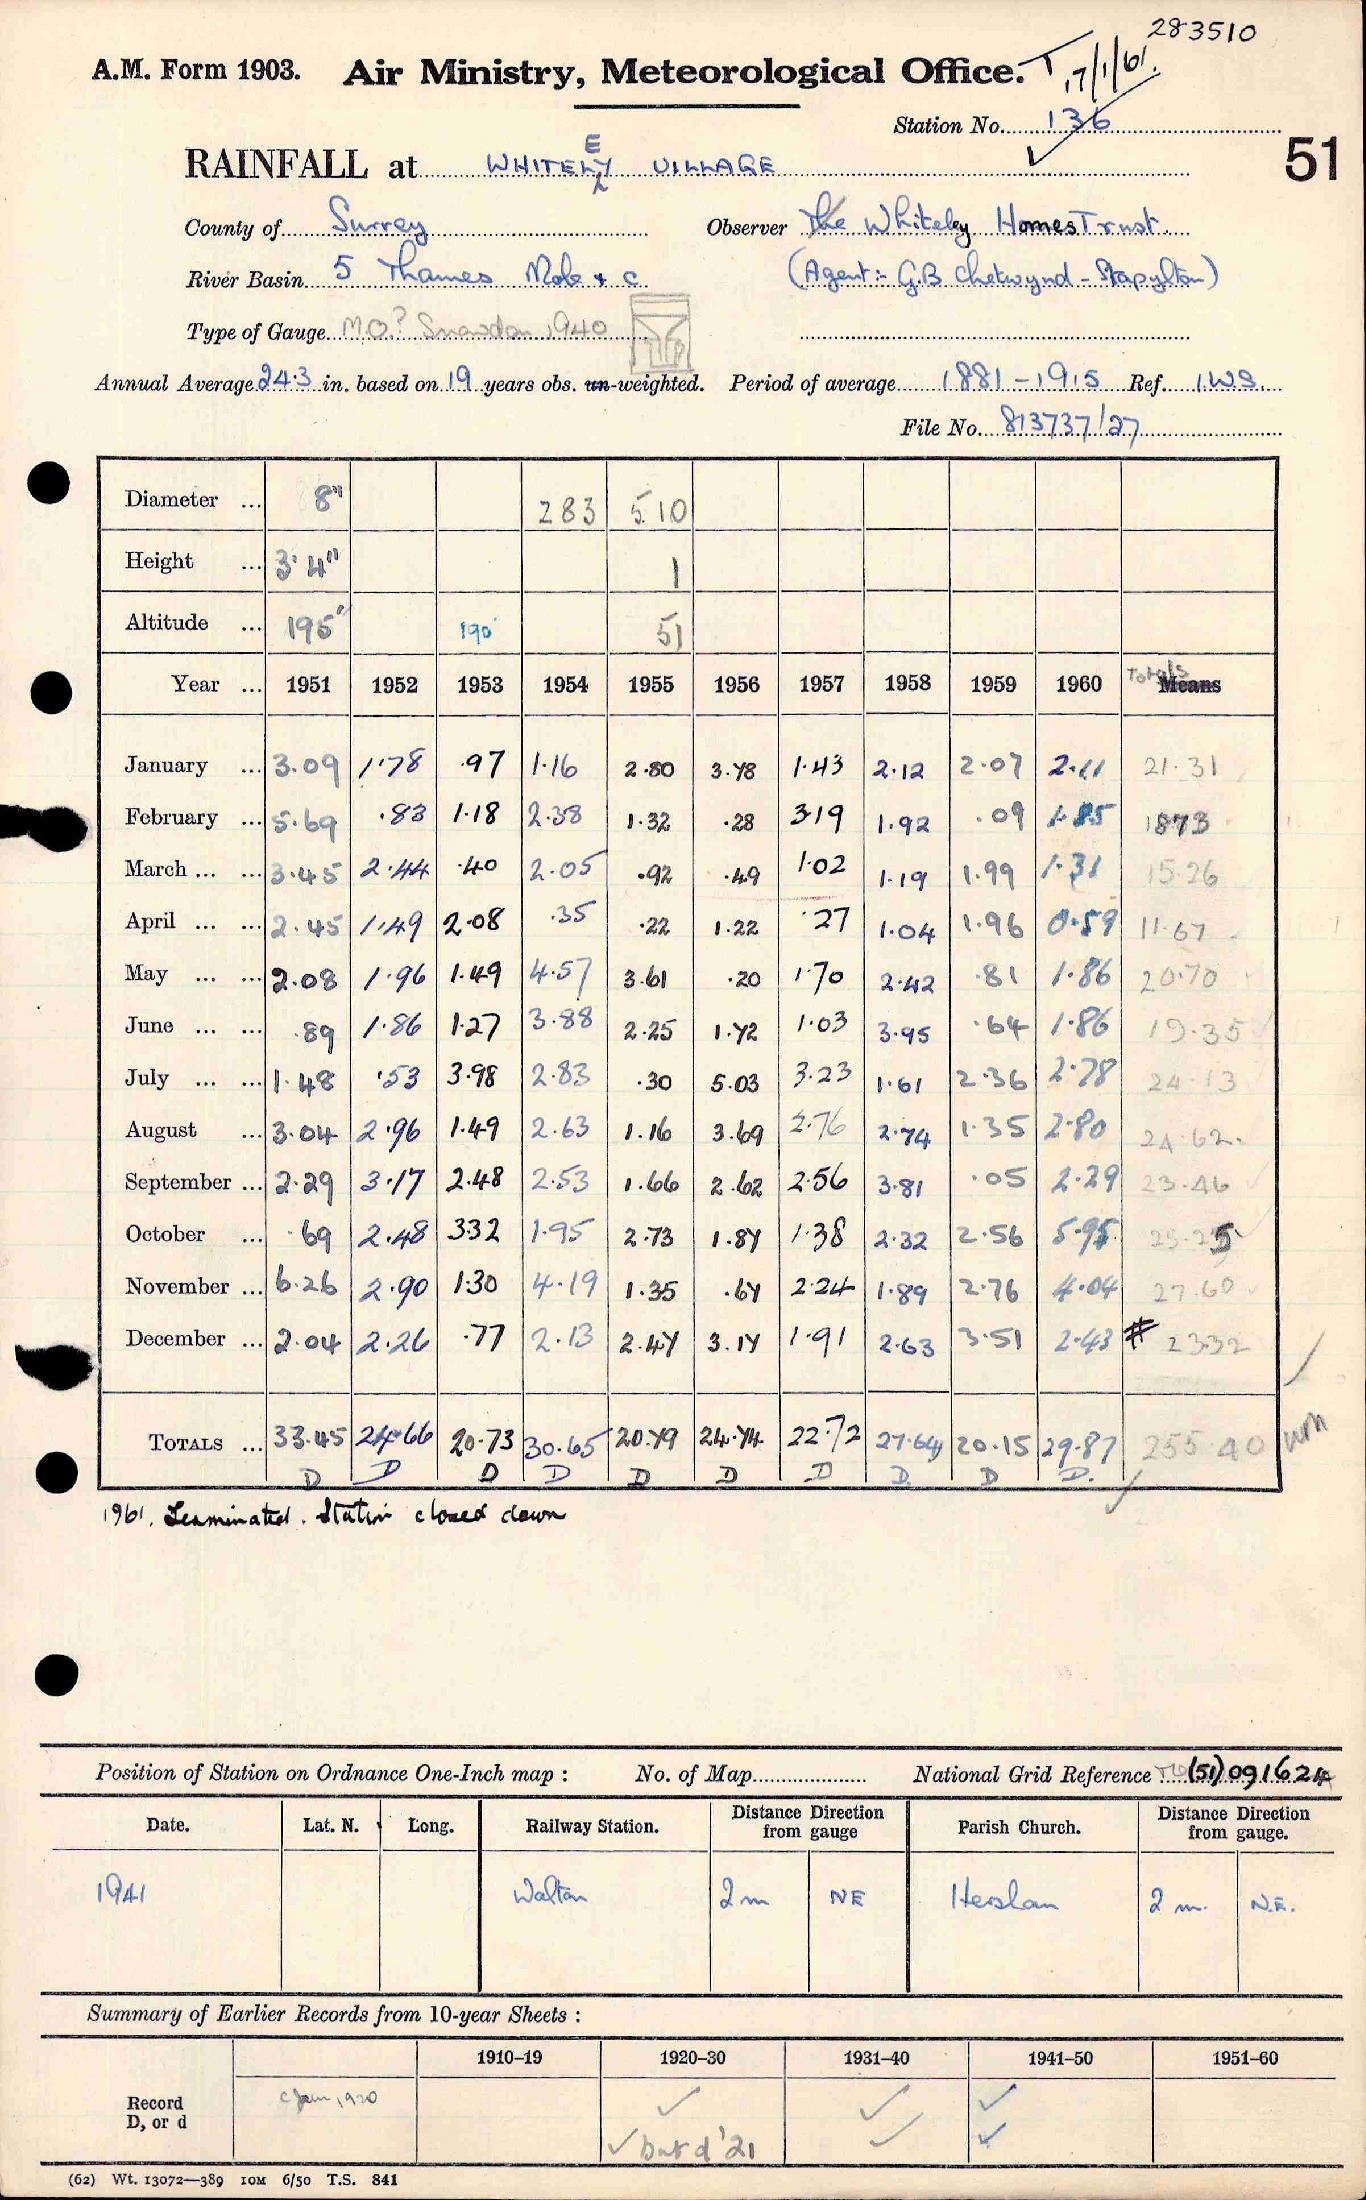 283510
A.M. Form 1903. Air Ministry, Meteorological Office. T 17/1/61.
Station No. 136
51
RAINFALL at WHITELEY VILLAGE
County of Surrey Observer The Whiteley Homes Trust
River Basin 5 Thames Mole & C (Agent:- G.B Chetwynd-Stapylton)
Type of Gauge M.O.? Snowdon 1940
Annual Average 24.3 in. based on 19 years obs. un-weighted. Period of average 1881-1915 Ref. I.W.S.
File No. 813737/27
Diameter ... 8" 283 510
Height ... 3' 4" 1
Altitude ... 195' 190' 51
Year ... 1951 1952 1953 1954 1955 1956 1957 1958 1959 1960 Totals Means
January ... 3.09 1.78 .97 1.16 2.80 3.78 1.43 2.12 2.07 2.11 21.31
February ... 5.69 .83 1.18 2.38 1.32 .28 3.19 1.92 .09 1.85 18.73
March ... ... 3.45 2.44 .40 2.05 .92 .49 1.02 1.19 1.99 1.31 15.26
April ... ... 2.45 1.49 2.08 .35 .22 1.22 .27 1.04 1.96 0.59 11.67
May ... ... 2.08 1.96 1.49 4.57 3.61 .20 1.70 2.42 .81 1.86 20.70
June ... ... .89 1.86 1.27 3.88 2.25 1.72 1.03 3.95 .64 1.86 19.35
July ... ... 1.48 .53 3.98 2.83 .30 5.03 3.23 1.61 2.36 2.78 24.13
August ... 3.04 2.96 1.49 2.63 1.16 3.69 2.76 2.74 1.35 2.80 24.62
September ... 2.29 3.17 2.48 2.53 1.66 2.62 2.56 3.81 .05 2.29 23.46
October ... .69 2.48 3.32 1.95 2.73 1.87 1.38 2.32 2.56 5.95 25.25
November ... 6.26 2.90 1.30 4.19 1.35 .67 2.24 1.89 2.76 4.04 27.60
December ... 2.04 2.26 .77 2.13 2.47 3.17 1.91 2.63 3.51 2.43 # 23.32
TOTALS ... 33.45 24.66 20.73 30.65 20.79 24.74 22.72 27.64 20.15 29.87 255.40
D D D D D D D D. D D.
1961. Terminated. Station closed down
Position of Station on Ordnance One-Inch map : No. of Map National Grid Reference (51) 091624
Date. Lat. N. Long. Railway Station. Distance Direction from gauge Parish Church. Distance Direction from gauge.
1941 Walton 2 m NE Hersham 2 m. N.E.
Summary of Earlier Records from 10-year Sheets :
1910–19 1920–30 1931–40 1941–50 1951–60
Record D, or d
c Jan, 1920
but d '21
(62) Wt. 13072—389 10M 6/50 T.S. 841